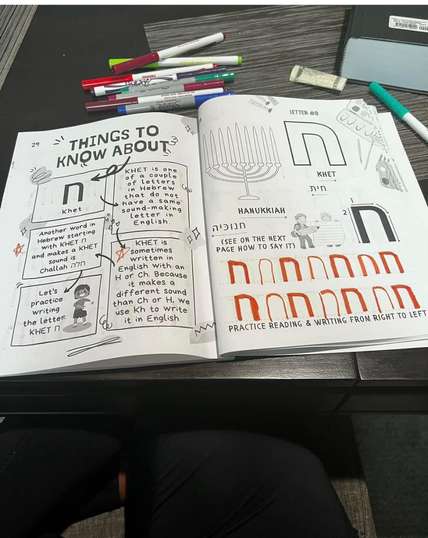 29
THINGS TO
KNOW ABOUT
ח
Khet
KHET is one
of a couple
of letters
in Hebrew
that do not
have a same
sound-making
letter in
English.
Another word in
Hebrew starting
with KHET ח
and makes a KHET
sound is
Challah חלה
KHET is
sometimes
written in
English with an
H or Ch. Because
it makes a
different sound
than Ch or H, we
use Kh to write
it in English
Let's
practice
writing
the letter
KHET ח
LETTER #8
ח
KHET
חית
HANUKKIAH
חנוכיה
(SEE ON THE NEXT
PAGE HOW TO SAY IT)
1
2
ח
ח ח ח ח ח ח ח
ח ח ח ח ח ח ח
PRACTICE READING & WRITING FROM RIGHT TO LEFT